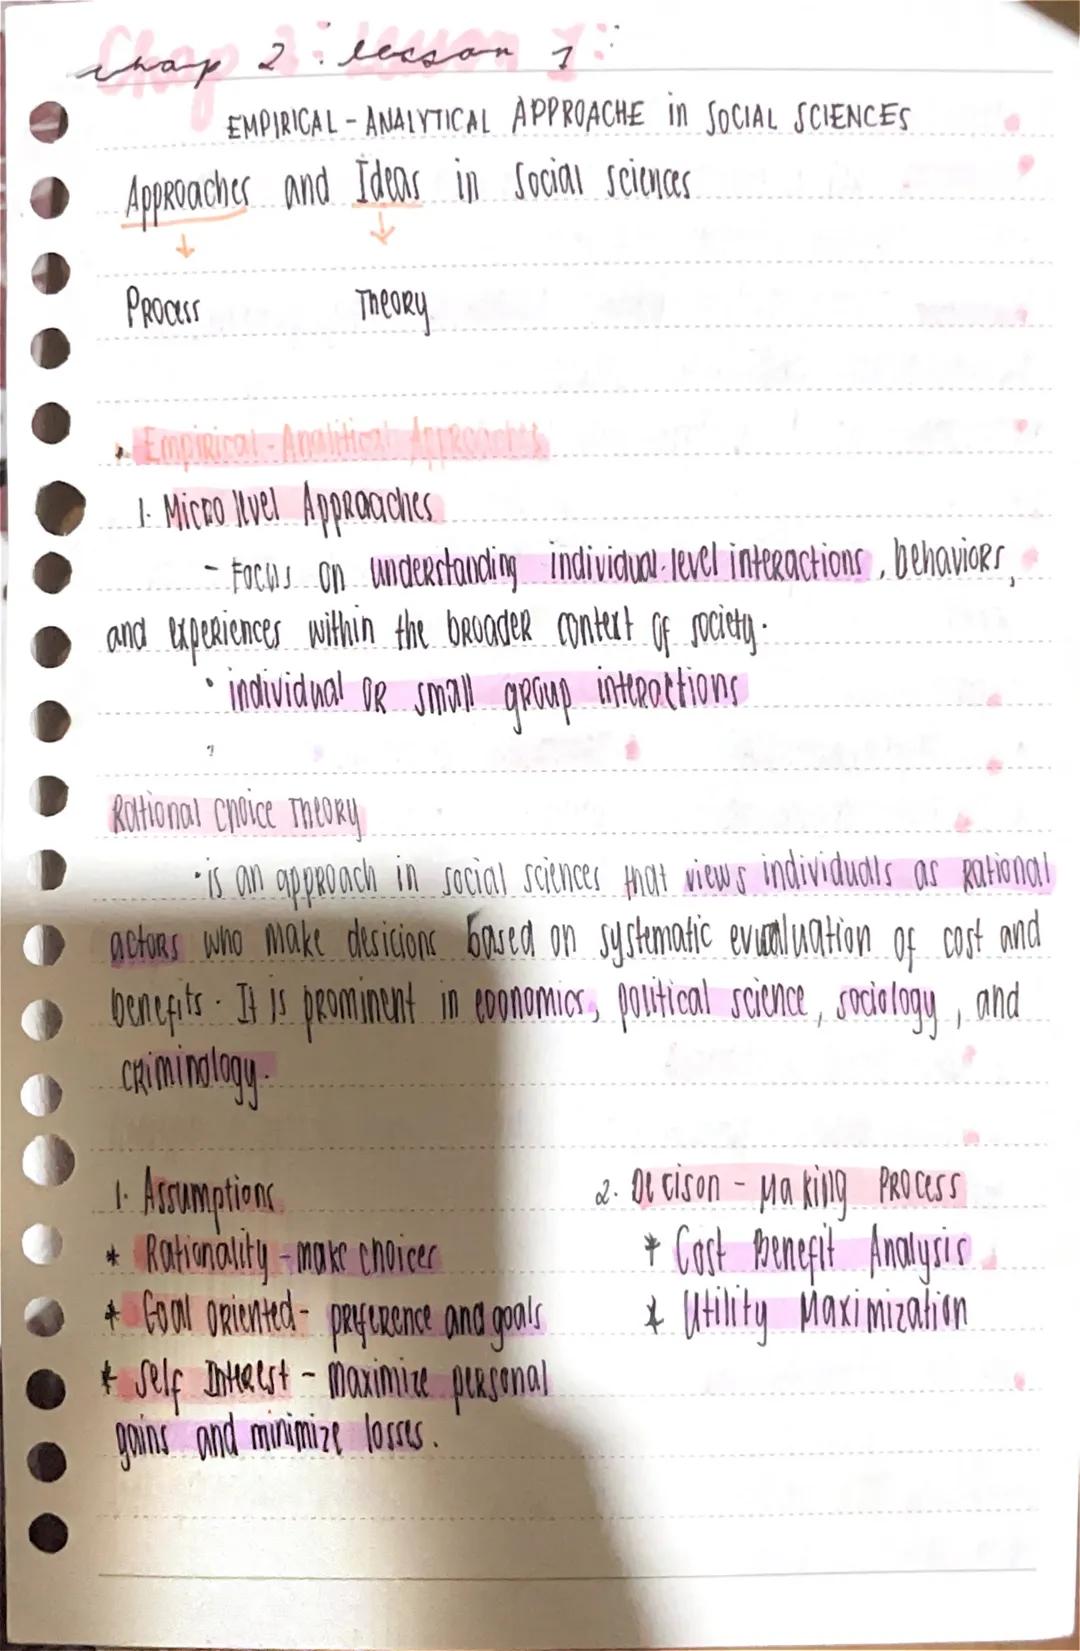 Chap 2: lesson 1
EMPIRICAL - ANALYTICAL APPROACHE in SOCIAL SCIENCES
Approaches and Ideas in Social sciences
Process Theory
Empirical - Analitical Approaches
1. Micro level Approaches
- Focus on understanding individual-level interactions, behaviors,
and experiences within the broader context of society.
• individual or small group interactions
Rational Choice Theory
• is an approach in social sciences that views individuals as rational
actors who make desicions based on systematic evaluation of cost and
benefits. It is prominent in economics, political science, sociology, and
criminology.
1. Assumptions
* Rationality - make choices
* Goal oriented - preference and goals
* Self Interest - maximize personal
gains and minimize losses.
2. Decison - Making Process
* Cost Benefit Analysis
* Utility Maximization